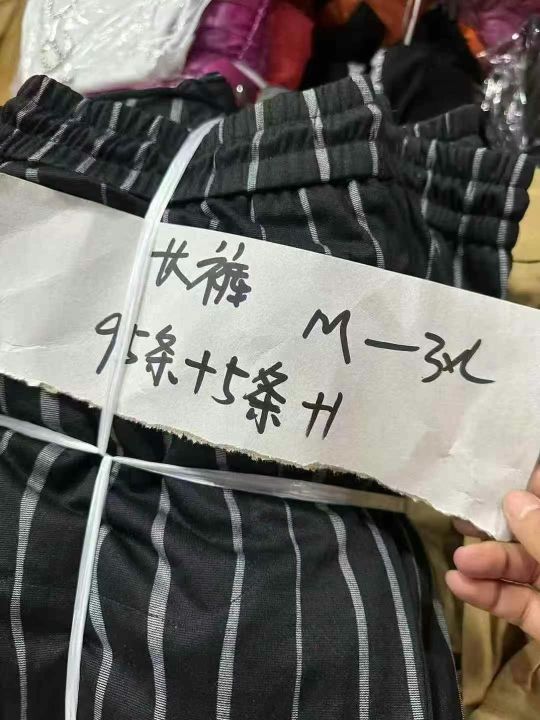 女裤 M—3XL
95条+5条H